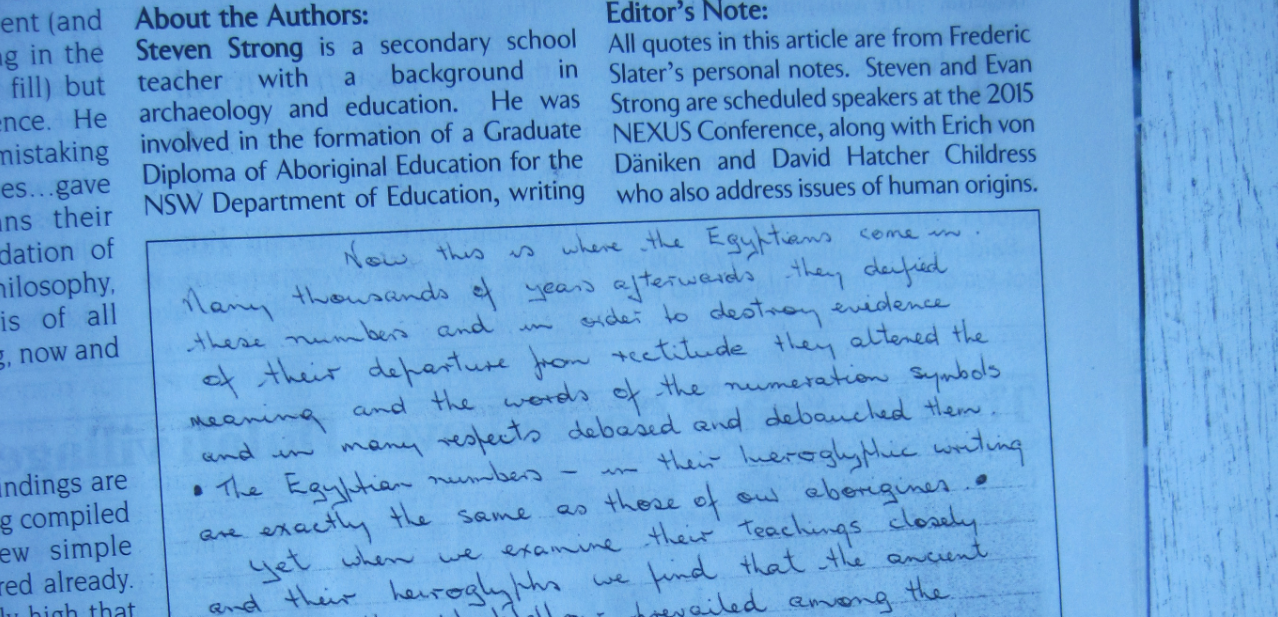 ent (and
g in the
fill) but
ence. He
mistaking
es...gave
ans their
dation of
hilosophy,
is of all
g, now and
indings are
g compiled
ew simple
red already.
ly high that
About the Authors:
Steven Strong is a secondary school
teacher with a background in
archaeology and education. He was
involved in the formation of a Graduate
Diploma of Aboriginal Education for the
NSW Department of Education, writing
Editor's Note:
All quotes in this article are from Frederic
Slater's personal notes. Steven and Evan
Strong are scheduled speakers at the 2015
NEXUS Conference, along with Erich von
Däniken and David Hatcher Childress
who also address issues of human origins.
Now this is where the Egyptians come in.
Many thousands of years afterwards they deified
these numbers and in order to destroy evidence
of their departure from rectitude they altered the
meaning and the words of the numeration symbols
and in many respects debased and debauched them.
• The Egyptian numbers – in their hieroglyphic writing
are exactly the same as those of our aborigines. •
Yet when we examine their teachings closely
and their heiroglyphs we find that the ancient
prevailed among the